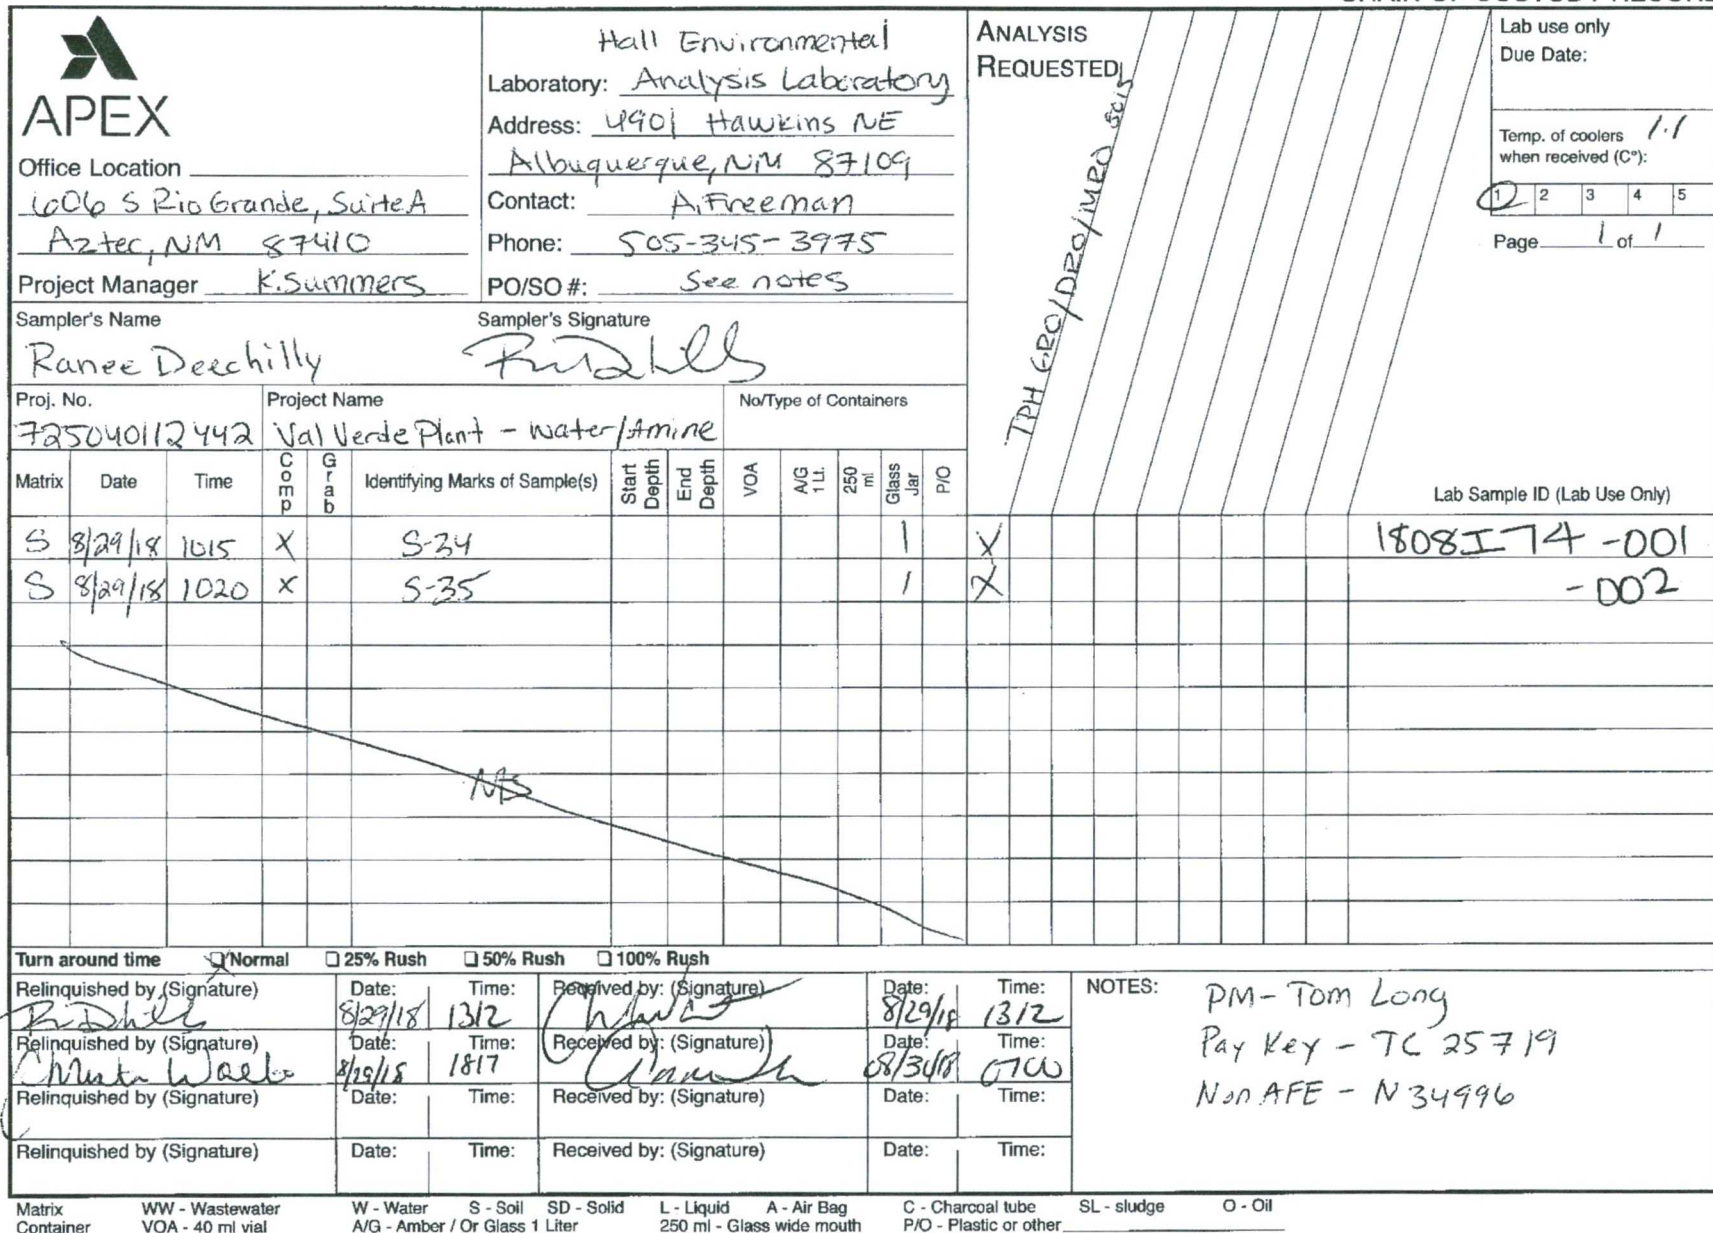 APEX
Office Location
606 S Rio Grande, Suite A
Aztec, NM 87410
Project Manager K. Summers
Hall Environmental
Laboratory: Analysis Laboratory
Address: 4901 Hawkins NE
Albuquerque, NM 87109
Contact: A. Freeman
Phone: 505-345-3975
PO/SO #: See notes
ANALYSIS
REQUESTED
TPH GRO/DRO/MRO 8015
Lab use only
Due Date:
Temp. of coolers 1.1
when received (C°):
1 2 3 4 5
Page 1 of 1
Sampler's Name
Ranee Deechilly
Sampler's Signature
Proj. No.
725040112442
Project Name
Val Verde Plant - Water/Amine
No/Type of Containers
Matrix Date Time Comp Grab Identifying Marks of Sample(s) Start Depth End Depth VOA A/G 1 Lt. 250 ml Glass Jar P/O Lab Sample ID (Lab Use Only)
S 8/29/18 1015 X S-34 1 X 1808I74-001
S 8/29/18 1020 X S-35 1 X -002
Turn around time Normal 25% Rush 50% Rush 100% Rush
Relinquished by (Signature) Date: Time: Received by: (Signature) Date: Time:
8/29/18 1312 8/29/18 1312
Relinquished by (Signature) Date: Time: Received by: (Signature) Date: Time:
8/29/18 1817 0700
Relinquished by (Signature) Date: Time: Received by: (Signature) Date: Time:
Relinquished by (Signature) Date: Time: Received by: (Signature) Date: Time:
NOTES: PM - Tom Long
Pay Key - TC 25719
Non AFE - N 34996
Matrix WW - Wastewater W - Water S - Soil SD - Solid L - Liquid A - Air Bag C - Charcoal tube SL - sludge O - Oil
Container VOA - 40 ml vial A/G - Amber / Or Glass 1 Liter 250 ml - Glass wide mouth P/O - Plastic or other